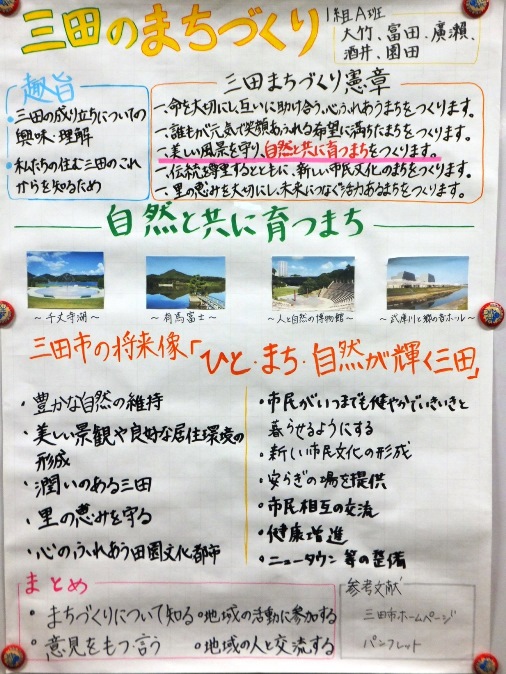 三田のまちづくり
1組A班
大竹、富田、廣瀬、
酒井、園田
趣旨
・三田の成り立ちについての
興味・理解
・私たちの住む三田のこれ
からを知るため
三田まちづくり憲章
一、命を大切にし、互いに助け合う、心ふれあうまちをつくります。
一、誰もが元気で笑顔あふれる希望に満ちたまちをつくります。
一、美しい風景を守り、自然と共に育つまちをつくります。
一、伝統を尊重するとともに、新しい市民文化のまちをつくります。
一、里の恵みを大切にし、未来につなぐ活力あるまちをつくります。
自然と共に育つまち
～千丈寺湖～
～有馬富士～
～人と自然の博物館～
～武庫川と郷の音ホール～
三田市の将来像「ひと・まち・自然が輝く三田」
・豊かな自然の維持
・美しい景観や良好な居住環境の
形成
・潤いのある三田
・里の恵みを守る
・心のふれあう田園文化都市
・市民がいつまでも健やかでいきいきと
暮らせるようにする
・新しい市民文化の形成
・安らぎの場を提供
・市民相互の交流
・健康増進
・ニュータウン等の整備
まとめ
・まちづくりについて知る・地域の活動に参加する
・意見をもつ・言う ・地域の人と交流する
参考文献
三田市ホームページ
パンフレット